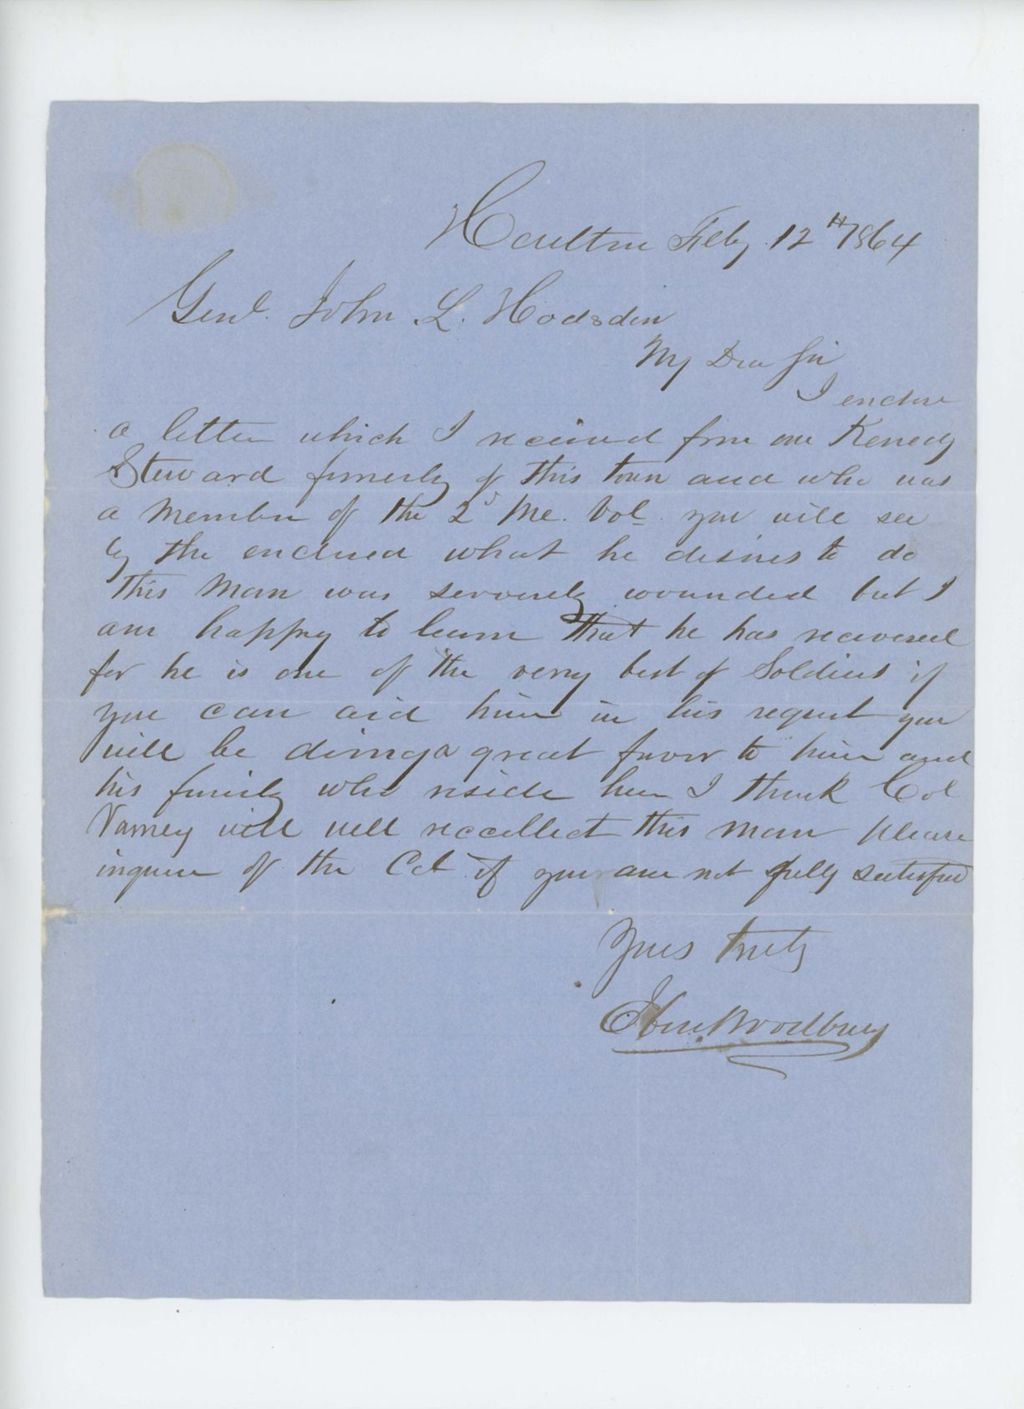 Houlton Feby. 12th 1864
Genl. John L. Hodsdon
My Dear Sir
I enclose
a letter which I received from one Kenedy
Steward formerly of this town and who was
a member of the 2d Me. Vol. you will see
by the enclosed what he desires to do
This man was serverely wounded but I
am happy to learn that he has recovered
for he is one of the very best of Soldiers if
you can aid him in his request you
will be doing a great favor to him and
his family who reside here I think Col
Varney will well reccollect this man please
inquire of the Col. if you are not fully satisfied
Yours truly
Eben Woodbury